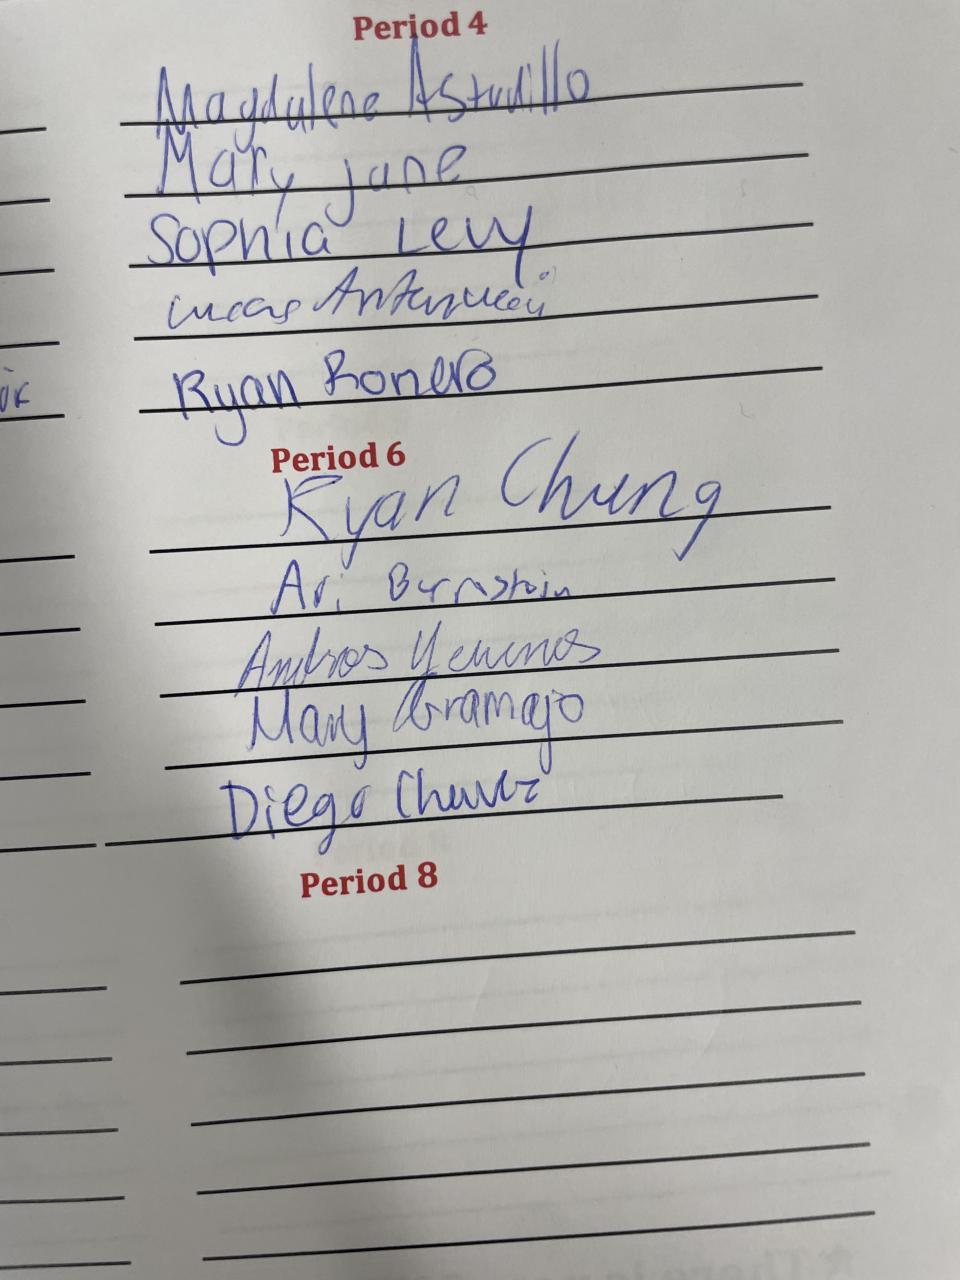 Period 4
Magdalena Astudillo
Mary Jane
Sophia Levy
Lucas
Ryan Romero
Period 6
Ryan Chung
Ari Bernstein
Andros
Mary Gramajo
Diego Chavez
Period 8